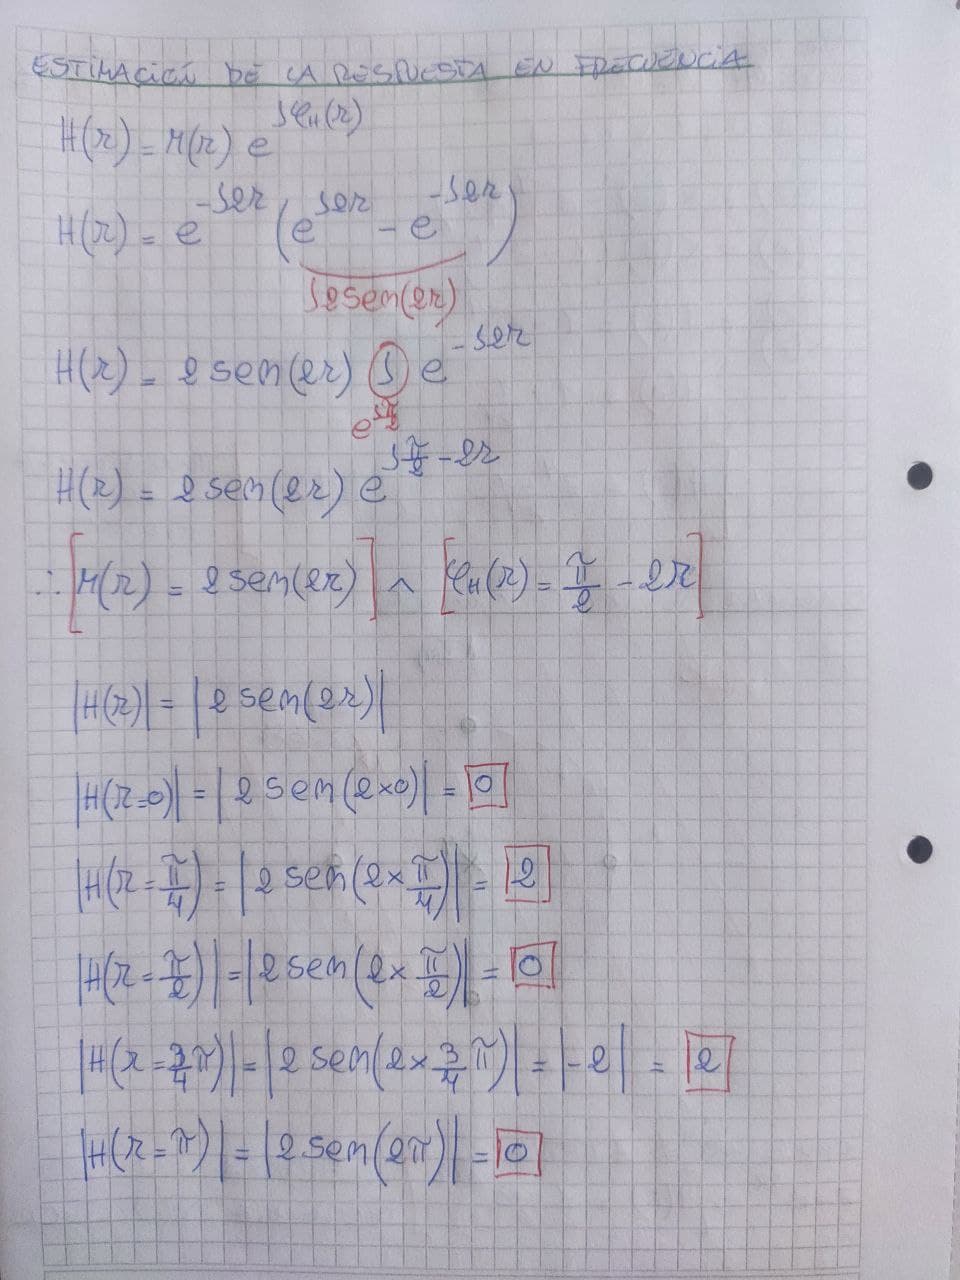 ESTIMACIÓN DE LA RESPUESTA EN FRECUENCIA
H(r) = M(r) e^{jφ_H(r)}
H(r) = e^{-j2r} (e^{j2r} - e^{-j2r})
j2sen(2r)
H(r) = 2 sen(2r) j e^{-j2r}
e^{jπ/2}
H(r) = 2 sen(2r) e^{jπ/2 - 2r}
∴ [M(r) = 2 sen(2r)] ∧ [φ_H(r) = π/2 - 2r]
|H(r)| = |2 sen(2r)|
|H(r=0)| = |2 sen(2×0)| = 0
|H(r=π/4) = |2 sen(2×π/4)| = 2
|H(r=π/2)| = |2 sen(2×π/2)| = 0
|H(r=3/4π)| = |2 sen(2×3/4π)| = |-2| = 2
|H(r=π)| = |2 sen(2π)| = 0